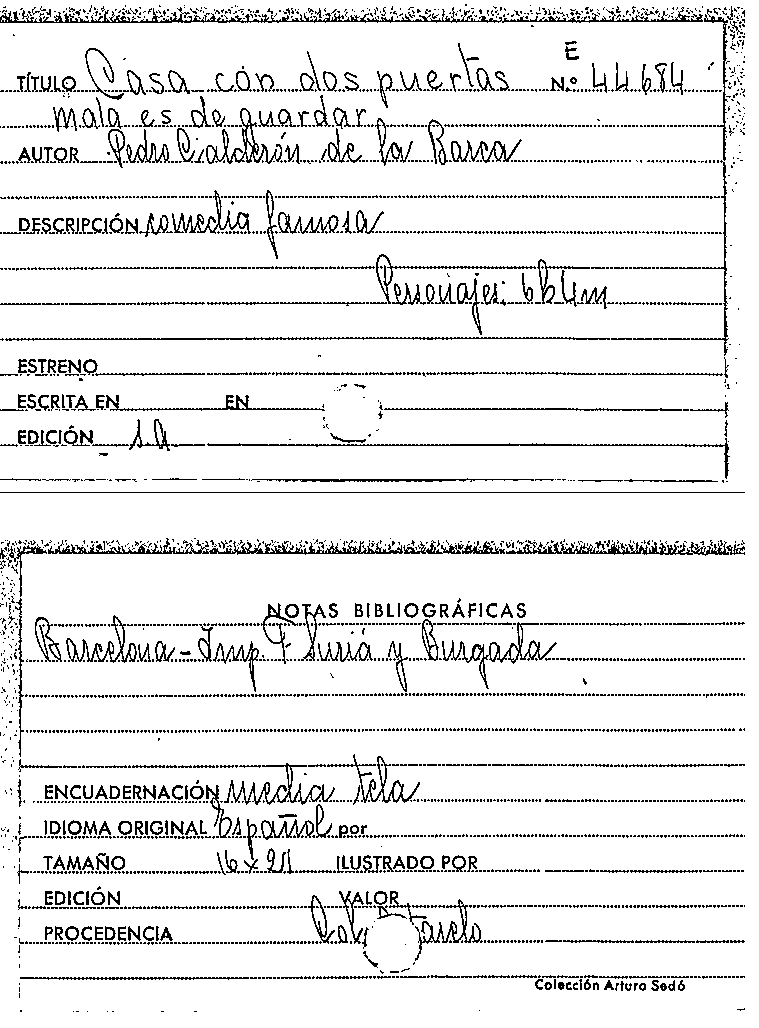 E
TÍTULO Casa con dos puertas N.º 44684
mala es de guardar
AUTOR Pedro Calderón de la Barca
DESCRIPCIÓN comedia famosa
Personajes: 6h4m
ESTRENO
ESCRITA EN EN
EDICIÓN s.a.
NOTAS BIBLIOGRÁFICAS
Barcelona - Imp. F Suriá y Burgada
ENCUADERNACIÓN media tela
IDIOMA ORIGINAL Español por
TAMAÑO 16 x 21 ILUSTRADO POR
EDICIÓN VALOR
PROCEDENCIA
Colección Arturo Sedó